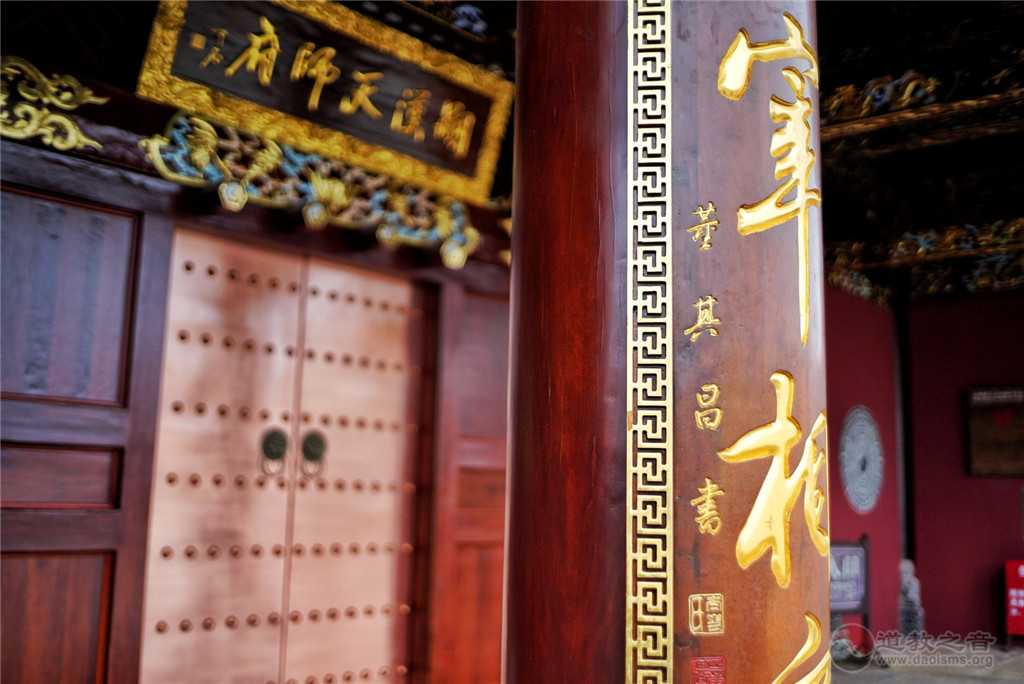 嗣漢天師府
宰相
董其昌書
道教之音
www.daoisms.org